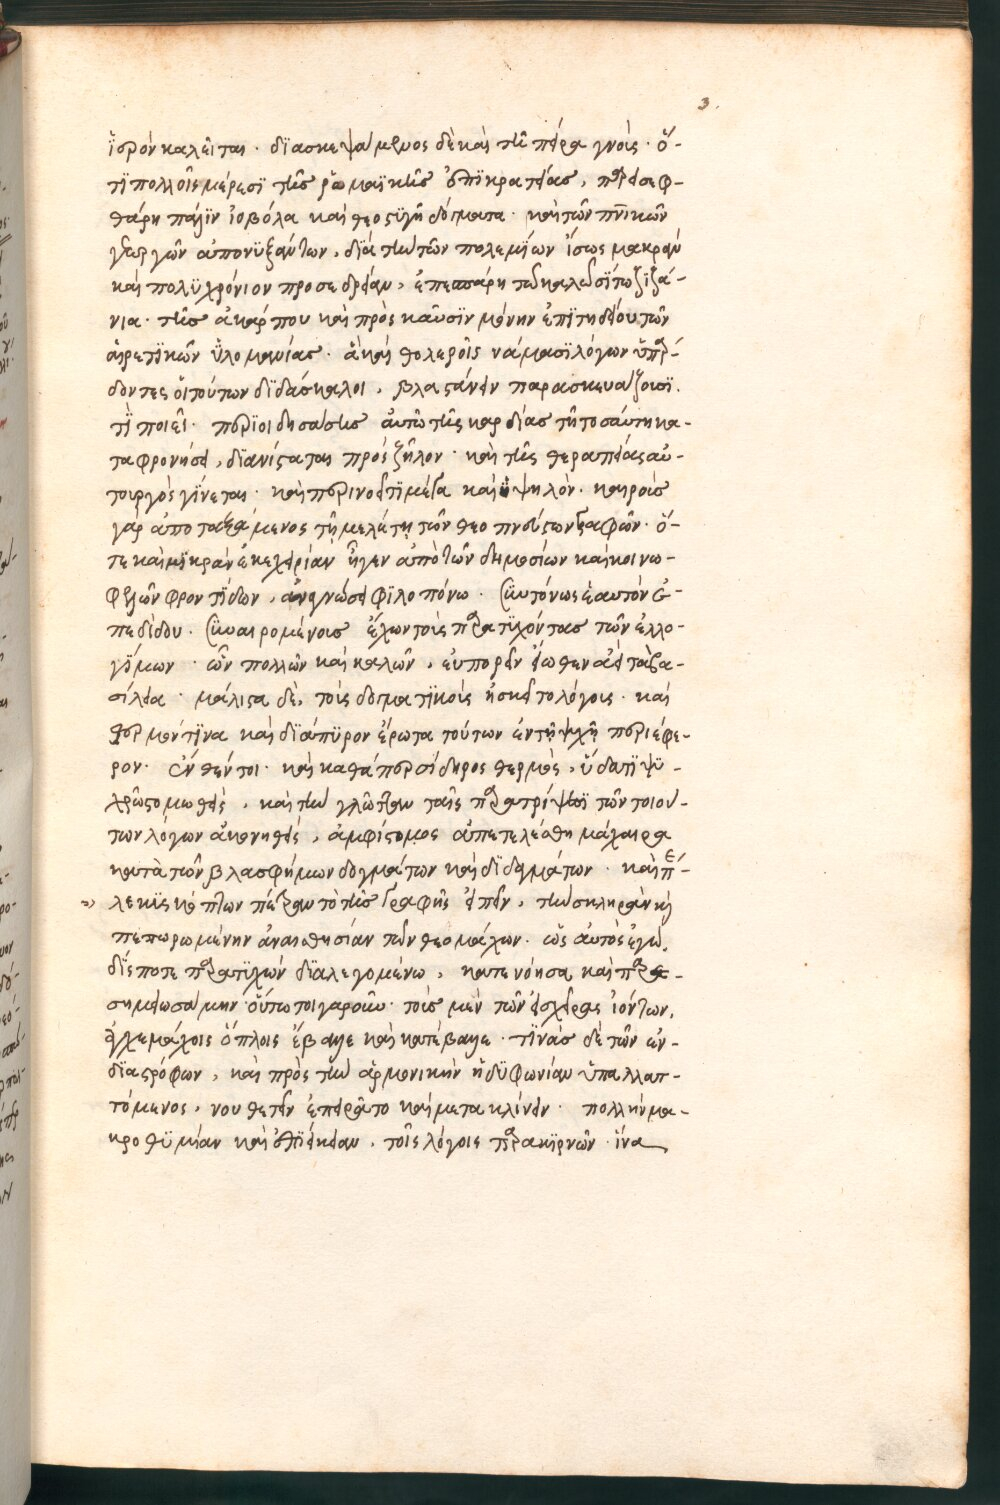 3.
ἱερὸν καλεῖται · διασκεψάμενος δὲ καὶ τῇ πείρᾳ γνοὺς · ὅ-
τι πολλοῖς μέρεσι τῆς ῥωμαϊκῆς ἐπικρατείας, παρεισεφ-
θάρη πάλιν ἰοβόλα καὶ θεοστυγῆ δόγματα · καὶ τῶν πνικῶν
γεωργῶν ἀπονυξάντων, διὰ τὴν τῶν πολεμίων ἴσως μακρὰν
καὶ πολυχρόνιον προσεδρείαν, ἐπεσπάρη τῷ καλῷ σίτῳ ζιζά-
νια · τῆς ἀκάρπου καὶ πρὸς καῦσιν μόνην ἐπιτηδείου τῶν
αἱρετικῶν ὑλομανίας · ἃ καὶ θολεροῖς νάμασι λόγων ὑπάρ-
δοντες οἱ τούτων διδάσκαλοι, βλαστάνειν παρασκευάζουσι.
τί ποιεῖ · περιοιδησάσης αὐτῷ τῆς καρδίας τῇ τοσαύτῃ κα-
ταφρονήσει, διανίσταται πρὸς ζῆλον · καὶ τῆς θεραπείας αὐ-
τουργὸς γίνεται · καὶ περινοεῖ τι μέγα καὶ ὑψηλόν · καιροὺς
γὰρ ἀποταξάμενος τῇ μελέτῃ τῶν θεοπνεύστων γραφῶν · ὅ-
τε καὶ μικρὰν ἐκεχειρίαν ἦγεν ἀπὸ τῶν δημοσίων καὶ κοινω-
φελῶν φροντίδων, ἀναγνώσει φιλοπόνω · συντόνως ἑαυτὸν ἐ-
πεδίδου · συναιρομένους ἔχων τοὺς παρατυχόντας τῶν ἐλλο-
γίμων · ὧν πολλῶν καὶ καλῶν, εὐπορεῖν εἴωθεν ἀεὶ τὰ βα-
σίλεια · μάλιστα δὲ, τοὺς δογματικοὺς ἠσκεῖτο λόγους · καὶ
θερμόν τινα καὶ διάπυρον ἔρωτα τούτων ἐν τῇ ψυχῇ περιέφε-
ρον · ἔνθέν τοι · καὶ καθάπερ σίδηρος θερμὸς, ὕδατι ψυ-
χρῷ στομωθεὶς, καὶ τὴν γλῶτταν ταῖς παρατρίψεσι τῶν τοιού-
των λόγων ἀκονηθεὶς, ἀμφίστομος ἀπετελέσθη μάχαιρα
κατὰ τῶν βλασφήμων δογμάτων καὶ διδαγμάτων · καὶ πέ-
λεκυς κόπτων πέτραν τὸ τῆς γραφῆς εἰπεῖν, τὴν σκληρὰν κὶ
πεπωρωμένην ἀναισθησίαν τῶν θεομάχων · ὡς αὐτὸς ἐγώ,
δίς ποτε παρατυχὼν διαλεγομένω, κατενόησα καὶ παρε-
σημειωσάμην · οὕτω τοιγαροῦν · τοὺς μὲν τῶν εἰς χεῖρας ἰόντων,
ἀγχεμάχοις ὅπλοις ἔβαλλε καὶ κατέβαλλε · τινὰς δὲ τῶν ἐν-
διαστρόφων, καὶ πρὸς τὴν ἁρμονικὴν ἡδυφωνίαν ὑπαλλατ-
τόμενος, νουθετεῖν ἐπειρᾶτο καὶ μετακλίνειν · πολλὴν μα-
κροθυμίαν καὶ ἐπιείκειαν, τοῖς λόγοις παρακιρνῶν · ἵνα